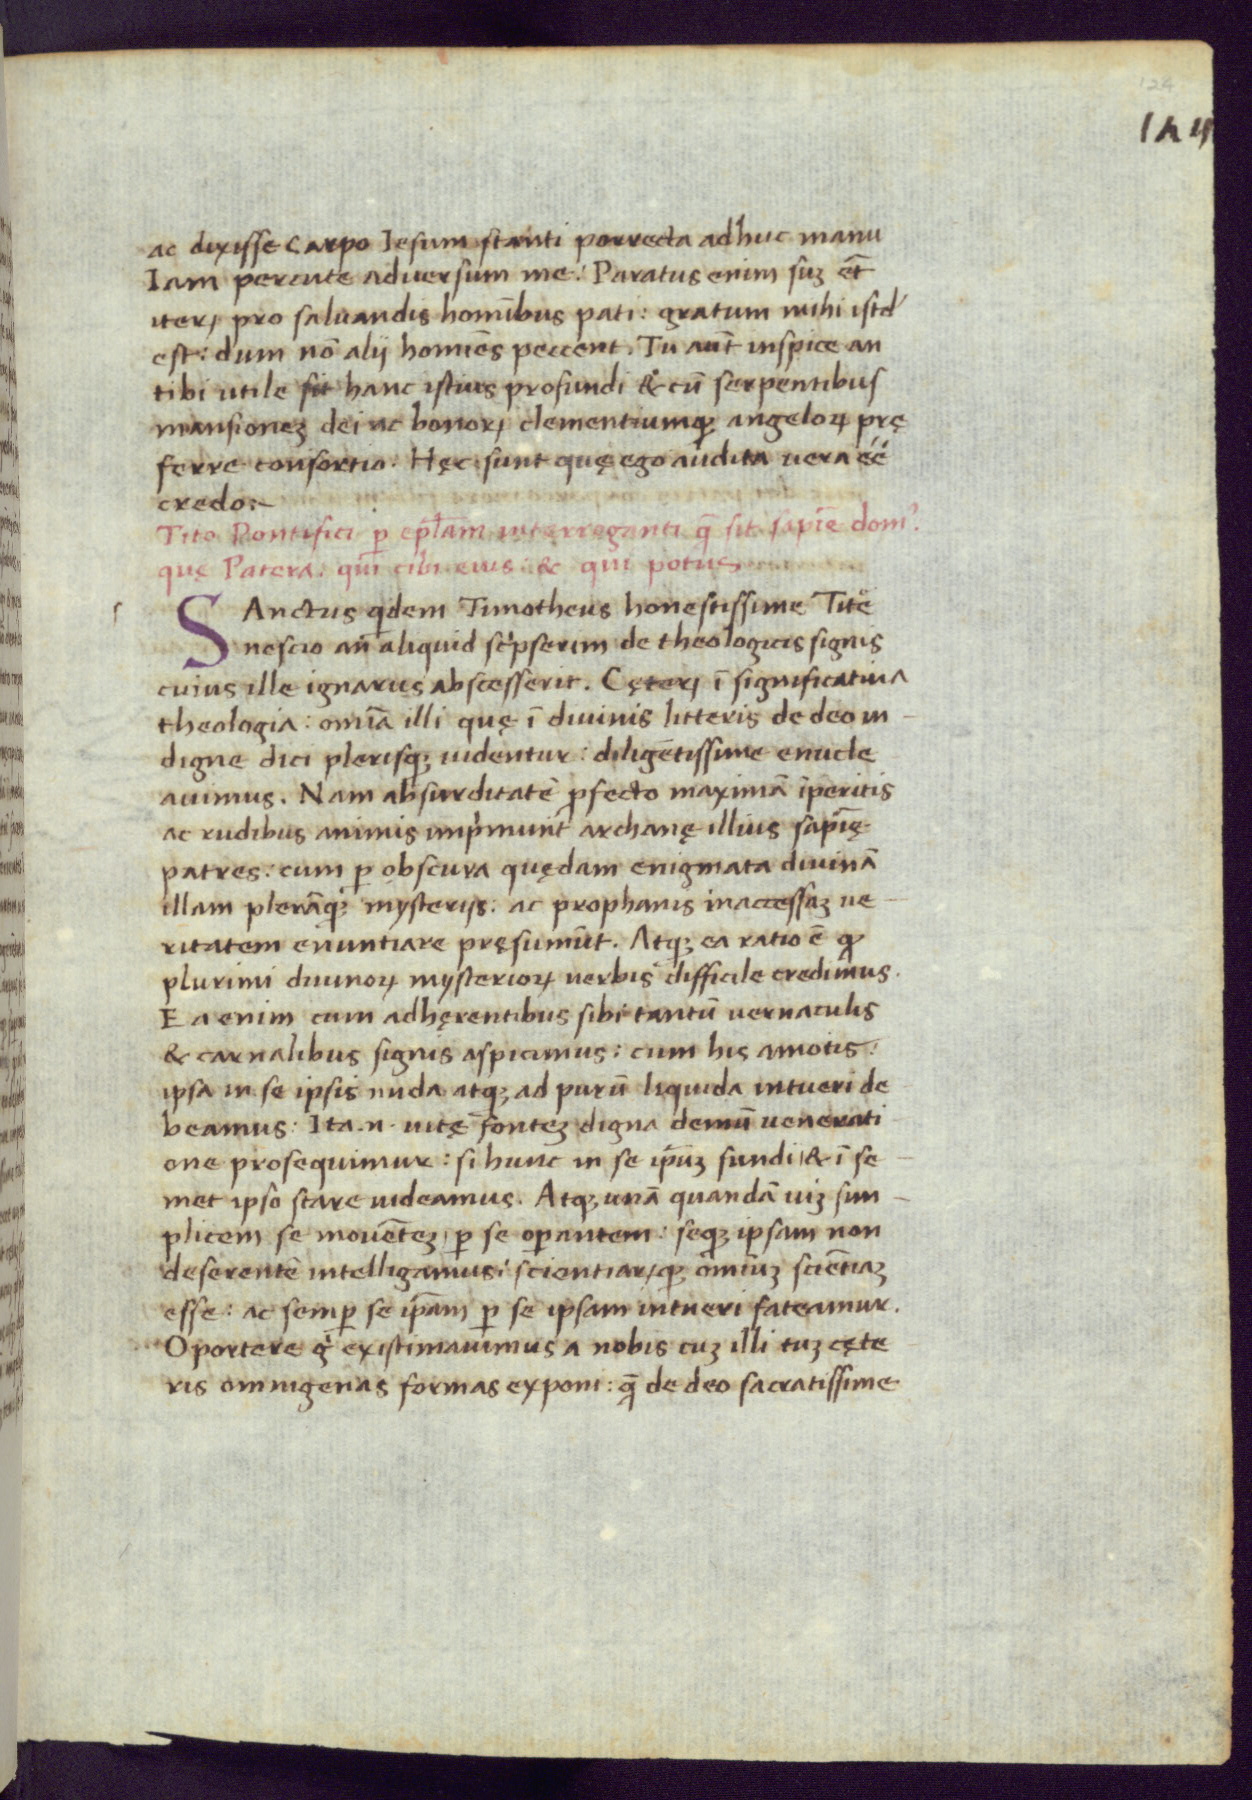 124
ac dixisse Carpo Iesum stanti porrecta adhuc manu
Iam percute adversum me: Paratus enim suꝫ et̄
iteꝝ pro saluandis homībus pati: gratum mihi istd
est: dum nō alij homīēs peccent. Tu aūt inspice an
tibi utile sit hanc istius profundi & cū serpentibus
mansioneꝫ dei ac bonoꝝ clementiumqꝫ angeloꝝ prę
ferre consortio. Hęc sunt quę ego audita uera eē
credo:~
Tito Pontifici ꝑ epl̄am interroganti q̄ sit sapīe dom'
quę Patera: qui cibi eius & qui potus
SAnctus qdem Timotheus honestissime Tite
nescio an aliquid scripserim de theologicis signis
cuius ille ignarus abscesserit. Cęteꝝ ī significatiua
theologia: omīa illi quę ī diuinis litteris de deo in-
digne dici plerisqꝫ uidentur: diligētissime enucle
auimus. Nam absurditatē ꝓfecto maximā īperitis
ac rudibus animis imprimunt archanę illius sapīę
patres: cum ꝑ obscura quędam enigmata diuinā
illam plerāqꝫ mysterijs: ac prophanis inaccessaꝫ ue-
ritatem enuntiare pręsumūt. Atqꝫ ea ratio ē qꝫ
plurimi diuinoꝝ mysterioꝝ uerbis difficile credimus.
Ea enim cum adhęrentibus sibi tantū uernaculis
& carnalibus signis aspicimus: cum his amotis:
ipsa in se ipsis nuda atqꝫ ad purū liquida intueri de
beamus: Ita .n. uitę fonteꝫ digna demū uenerati
one prosequimur: si hunc in se ip̄uꝫ fundi, & ī se-
met ipso stare uideamus. Atqꝫ unā quandā uiꝫ sim-
plicem se mouēteꝫ, ꝑ se oꝑantem: seqꝫ ipsam non
deserentē intelligamus: scientiaꝝqꝫ omīuꝫ sciētiaꝫ
esse: ac semꝑ se ip̄am ꝑ se ipsam intueri fateamur.
Oportere g̊ existimauimus a nobis cuꝫ illi tuꝫ cęte
ris omnigenas formas exponi: q̄ de deo sacratissime